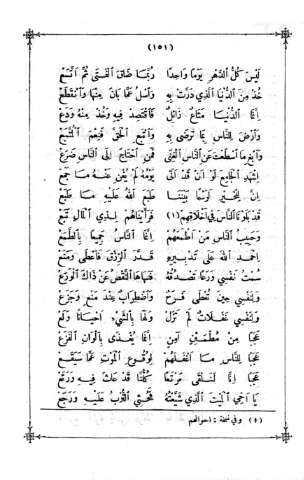 (١٥١)
لَيْسَ كُلُّ الدَّهْرِ يَوْمًا وَاحِدًا رُبَّمَا ضَاقَ الْفَتَى ثُمَّ اتَّسَعْ
خُذْ مِنَ الدُّنْيَا الَّذِي دَرَّتْ بِهِ وَاسْلُ عَمَّا بَانَ مِنْهَا وَانْقَطَعْ
إِنَّمَا الدُّنْيَا مَتَاعٌ زَائِلٌ فَاقْتَصِدْ فِيهِ وَخُذْ مِنْهُ وَدَعْ
وَارْضَ لِلنَّاسِ بِمَا تَرْضَى بِهِ وَاتَّبِعِ الْحَقَّ فَنِعْمَ الْمُتَّبَعْ
وَابْغِ مَا اسْطَعْتَ عَنِ النَّاسِ الْغِنَى فَمَنِ احْتَاجَ إِلَى النَّاسِ ضَرَعْ
اِشْهَدِ الْجَامِعَ لَوْ أَنْ قَدْ أَتَى يَوْمُهُ لَمْ يُغْنِ عَنْهُ مَا جَمَعْ
إِنَّ لِلْخَيْرِ لَرَسْمًا بَيِّنًا طَبَعَ اللهُ عَلَيْهِ مَا طَبَعْ
قَدْ بَلَوْنَا النَّاسَ فِي أَخْلَاقِهِمْ (١) فَرَأَيْنَاهُمْ لِذِي الْمَالِ تَبَعْ
وَحَبِيبُ النَّاسِ مَنْ أَطْمَعَهُمْ إِنَّمَا النَّاسُ جَمِيعًا بِالطَّمَعْ
اِحْمَدِ اللهَ عَلَى تَدْبِيرِهِ قَدَّرَ الرِّزْقَ فَأَعْطَى وَمَنَعْ
سُمْتُ نَفْسِي وَرَعًا تَصْدُقُهُ فَنَهَاهَا النَّقْصُ عَنْ ذَاكَ الْوَرَعْ
وَلِنَفْسِي حِينَ تُعْطَى فَرَحٌ وَاضْطِرَابٌ عِنْدَ مَنْعٍ وَجَزَعْ
وَلِنَفْسِي غَفَلَاتٌ لَمْ تَزَلْ وَلَهَا بِالشَّيْءِ أَحْيَانًا وَلَعْ
عَجَبًا مِنْ مُطْمَئِنٍّ آمِنٍ إِنَّمَا يُغْذَى بِأَلْوَانِ الْفَزَعْ
عَجَبًا لِلنَّاسِ مَا أَغْفَلَهُمْ لِوُقُوعِ الْمَوْتِ عَمَّا سَيَقَعْ
عَجَبًا إِنَّا لَنَلْقَى مَرْتَعًا كُلُّنَا قَدْ عَاثَ فِيهِ وَرَتَعْ
يَا أَخِي الْمَيْتَ الَّذِي شَيَّعْتُهُ فَحُثِي التُّرْبُ عَلَيْهِ وَرَجَعْ
(١) وفي نسخة : احوالهم